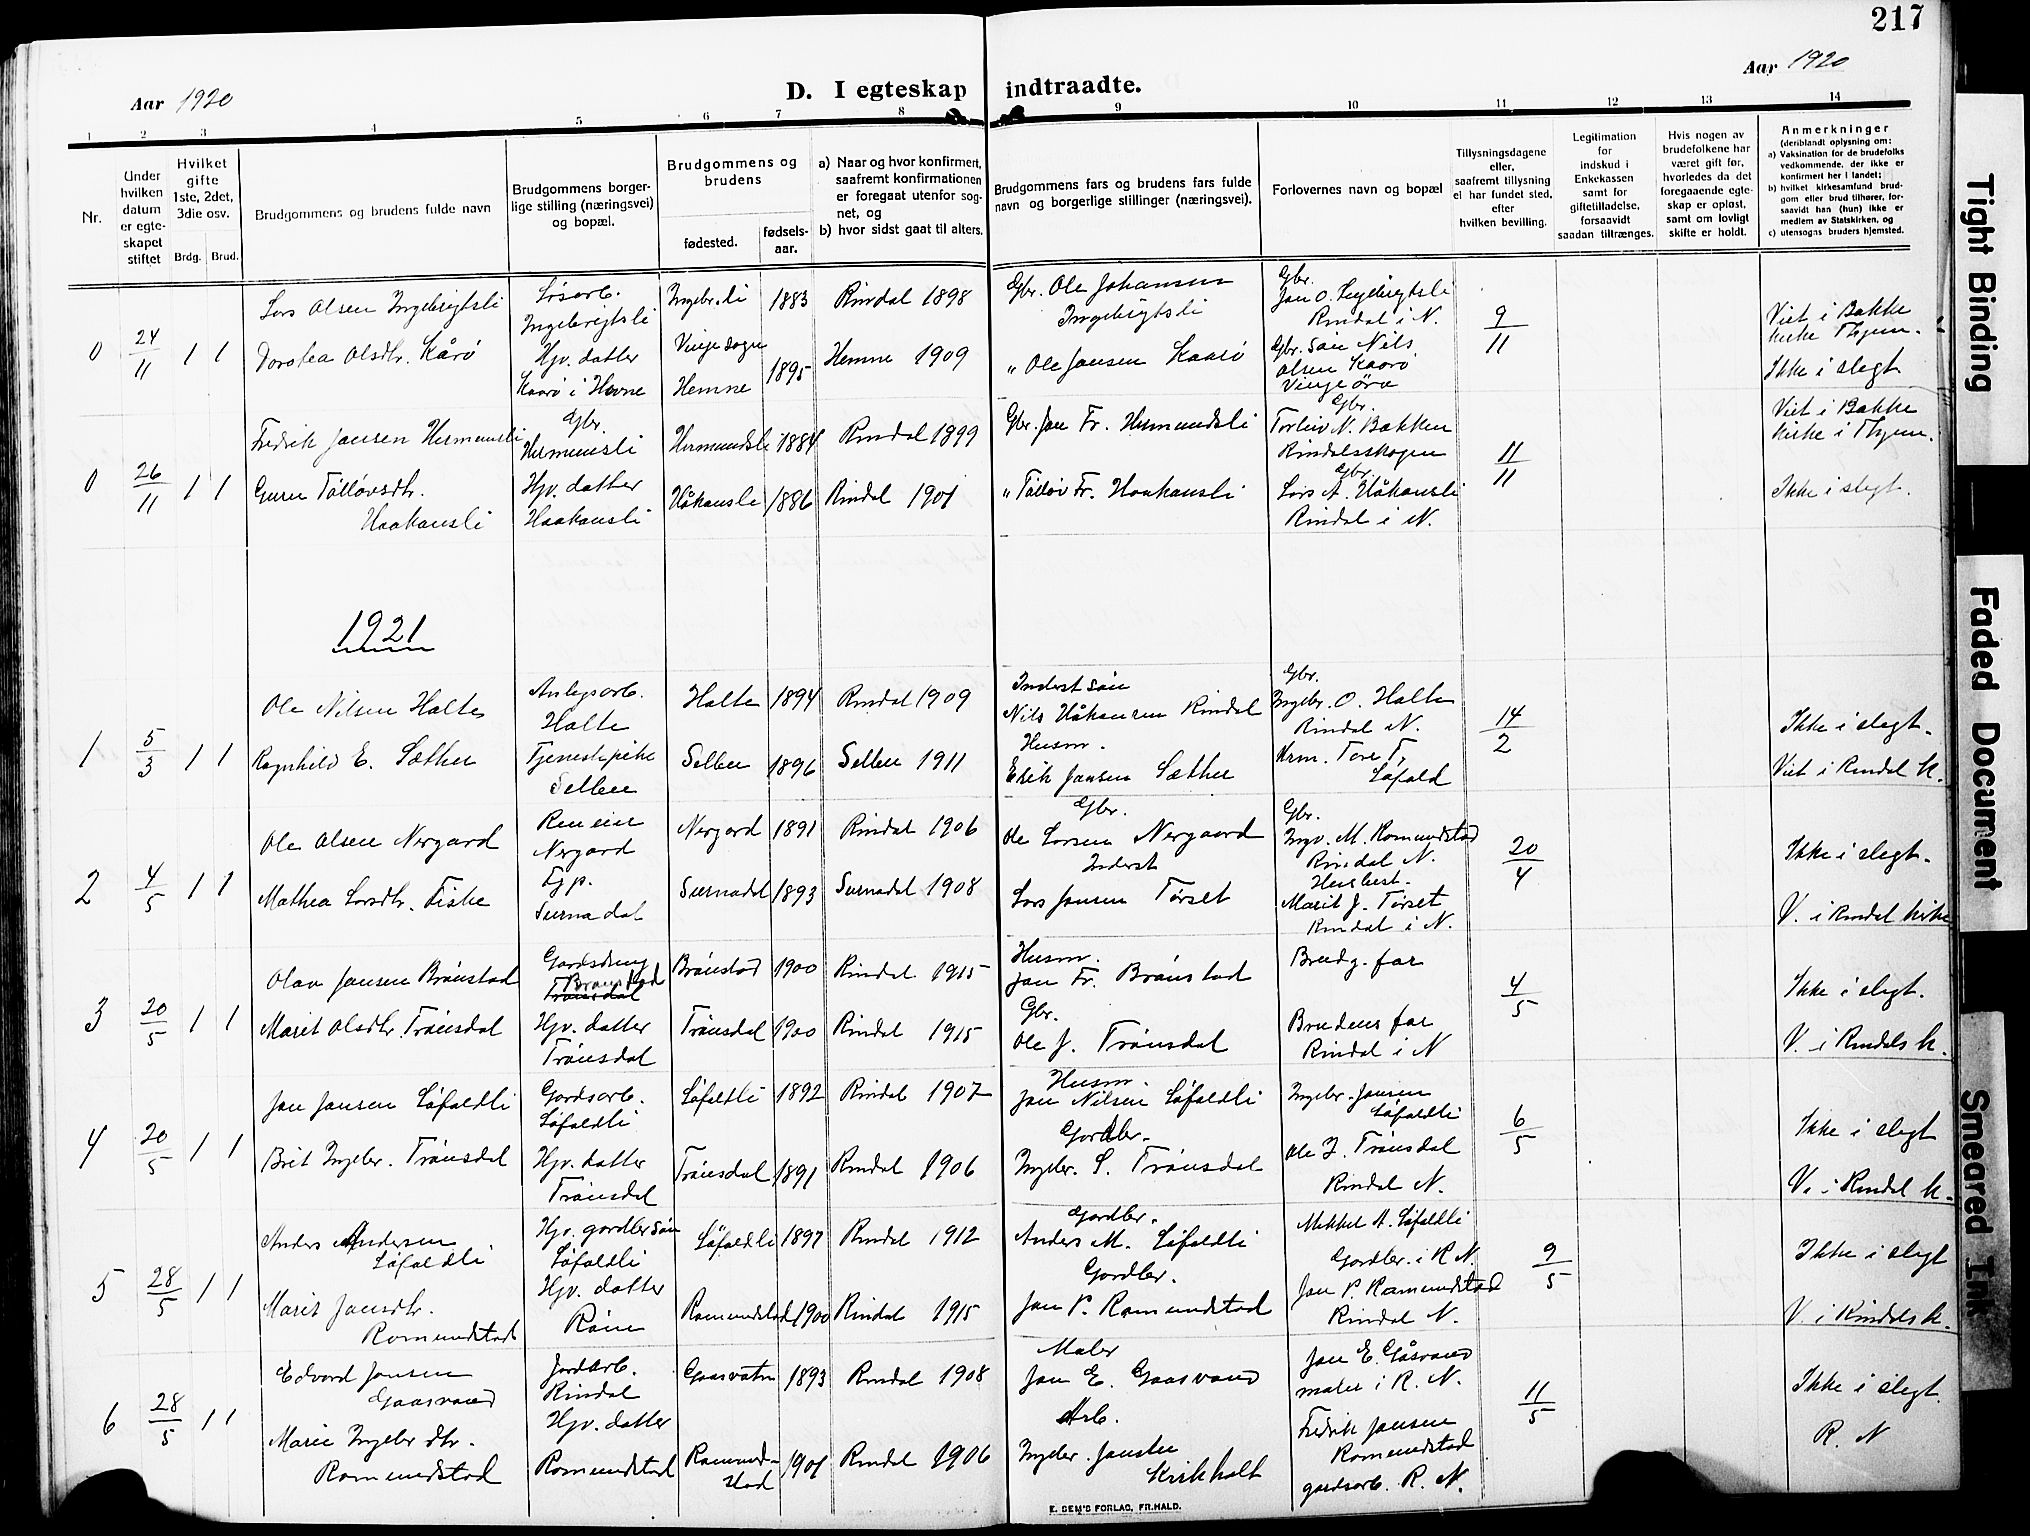 217
Aar 1920
D. I egteskap indtraadte.
Aar 1920
1 2 3 4 5 6 7 8 9 10 11 12 13 14
Nr.
Under hvilken datum er egte- skapet stiftet
Hvilket gifte 1ste, 2det, 3die osv.
Brdg. Brud.
Brudgommens og brudens fulde navn
Brudgommens borger- lige stilling (næringsvei) og bopæl.
Brudgommens og brudens
fødested.
fødsels- aar.
a) Naar og hvor konfirmert, saafremt konfirmationen er foregaat utenfor sog- net, og
b) hvor sidst gaat til alters.
Brudgommens fars og brudens fars fulde navn og borgerlige stillinger (næringsvei).
Forlovernes navn og bopæl
Tillysningsdagene eller, saafremt tillysning ei har fundet sted, efter hvilken bevilling.
Legitimation for indskud i Enkekassen samt for giftetilladelse, forsaavidt saadan tiltrænges.
Hvis nogen av brudefolkene har været gift før, hvorledes da det foregaaende egte- skap er opløst, samt om lovligt skifte er holdt.
Anmerkninger (deriblandt oplysning om:
a) Vaksination for de brudefolks vedkommende, der ikke er konfirmert her i landet;
b) hvilket kirkesamfund brud- gom eller brud tilhører, for- saavidt han (hun) ikke er medlem av Statskirken, og
c) utensogns bruders hjemsted.
0 24/11 1 1
Lars Olsen Ingebrigtsli
Dorotea Olsdtr. Kårø
Løsarb.
Ingebrigtsli
Hjv. datter
Kaarø i Hevne
Ingebr.li 1883
Vinje sogn
Hemne 1895
Rindal 1898
Hemne 1909
Gbr. Ole Johansen
Ingebrigtsli
" Ole Jansen Kaarø
Gbr.
Jon O. Ingebrigtsli
Rindal i N.
Gbr. søn Nils
Olsen Kaarø
Vinjeøra
9/11
Viet i Bakke
kirke Thjem.
Ikke i slegt
0 26/11 1 1
Fredrik Jansen Hermunsli
Guru Tølløvsdtr.
Haakansli
Gbr.
Hermunsli
Hjv. datter
Haakansli
Hermundsli 1884
Håkansli 1886
Rindal 1899
Rindal 1901
Gbr. Jon Fr. Hermundsli
" Tølløv Fr. Haakansli
Gbr.
Torleiv N. Bakken
Rindalsskogen
Gbr.
Lars A. Håkansli
Rindal i N.
11/11
Viet i Bakke
kirke i Thjem.
Ikke i slegt.
1921
1 5/3 1 1
Ole Nilsen Halte
Ragnhild E. Sæther
Anlegsarb.
Halte
Tjenestepike
Selbu
Halte 1894
Selbu 1896
Rindal 1909
Selbu 1911
Inderst søn
Nils Håkansen Rindal
Husm.
Erik Jansen Sæther
Gbr.
Ingebr. O. Halte
Rindal N.
Krm. Tore T.
Løfald
14/2
Ikke i slegt.
Viet i Rindal K.
2 4/5 1 1
Ole Olsen Nergard
Mathea Larsdtr. Fiske
Nergard
Tjp.
Surnadal
Nergard 1891
Surnadal 1893
Rindal 1906
Surnadal 1908
Gbr.
Ole Larsen Nergaard
Inderst
Lars Jansen Tørset
Gbr.
Ingv. M. Romundstad
Rindal N.
Marit J. Tørset
Rindal i N.
20/4
Ikke i slegt.
V. i Rindal kirke
3 20/5 1 1
Olav Jansen Brønstad
Marit Olsdtr. Trønsdal
Gardsdreng
Brønstad
Trønsdal
Hjv. datter
Trønsdal
Brønstad 1900
Trønsdal 1900
Rindal 1915
Rindal 1915
Husm.
Jon Fr. Brønstad
Gbr.
Ole J. Trønsdal
Brudg. far
Brudens far
Rindal i N
4/5
Ikke i slegt.
V. i Rindals K.
4 20/5 1 1
Jon Jansen Løfaldli
Brit Ingebr. Trønsdal
Gardsarb.
Løfaldli
Hjv. datter
Trønsdal
Løfaldli 1892
Trønsdal 1891
Rindal 1907
Rindal 1906
Husm.
Jon Nilsen Løfaldli
Gardbr.
Ingebr. S. Trønsdal
Ingebr. Jansen
Løfaldli
Ole I. Trønsdal
Rindal N.
6/5
Ikke i slegt
V. i Rindal K.
5 28/5 1 1
Anders Andersen
Løfaldli
Marit Jansdtr.
Romundstad
Hjv. gardbr søn
Løfaldli
Hjv. datter
Røen
Løfaldli 1897
Romundstad 1900
Rindal 1912
Rindal 1915
Gardbr.
Anders M. Løfaldli
Gardbr.
Jon P. Romundstad
Mikkel A. Løfaldli
Gardbr. i R N.
Jon P. Romundstad
Rindal N.
9/5
Ikke i slegt
V. i Rindals K.
6 28/5 1 1
Edvard Jansen
Gaasvand
Marie Ingebr dtr.
Romundstad
Jordarb.
Rindal
Hjv. datter
Romundstad
Gaasvatn 1893
Romund-
stad 1901
Rindal 1908
Rindal 1906
Maler
Jon E. Gaasvand
Arb.
Ingebr. Jansen
Kirkholt
Jon E. Gåsvand
maler i R. N.
Fredrik Jansen
Romundstad
gardsarb. R. N.
11/5
Ikke i slegt.
R. N
E. SEM'S FORLAG, FR.HALD.
Tight Binding
Faded Document
Smeared Ink